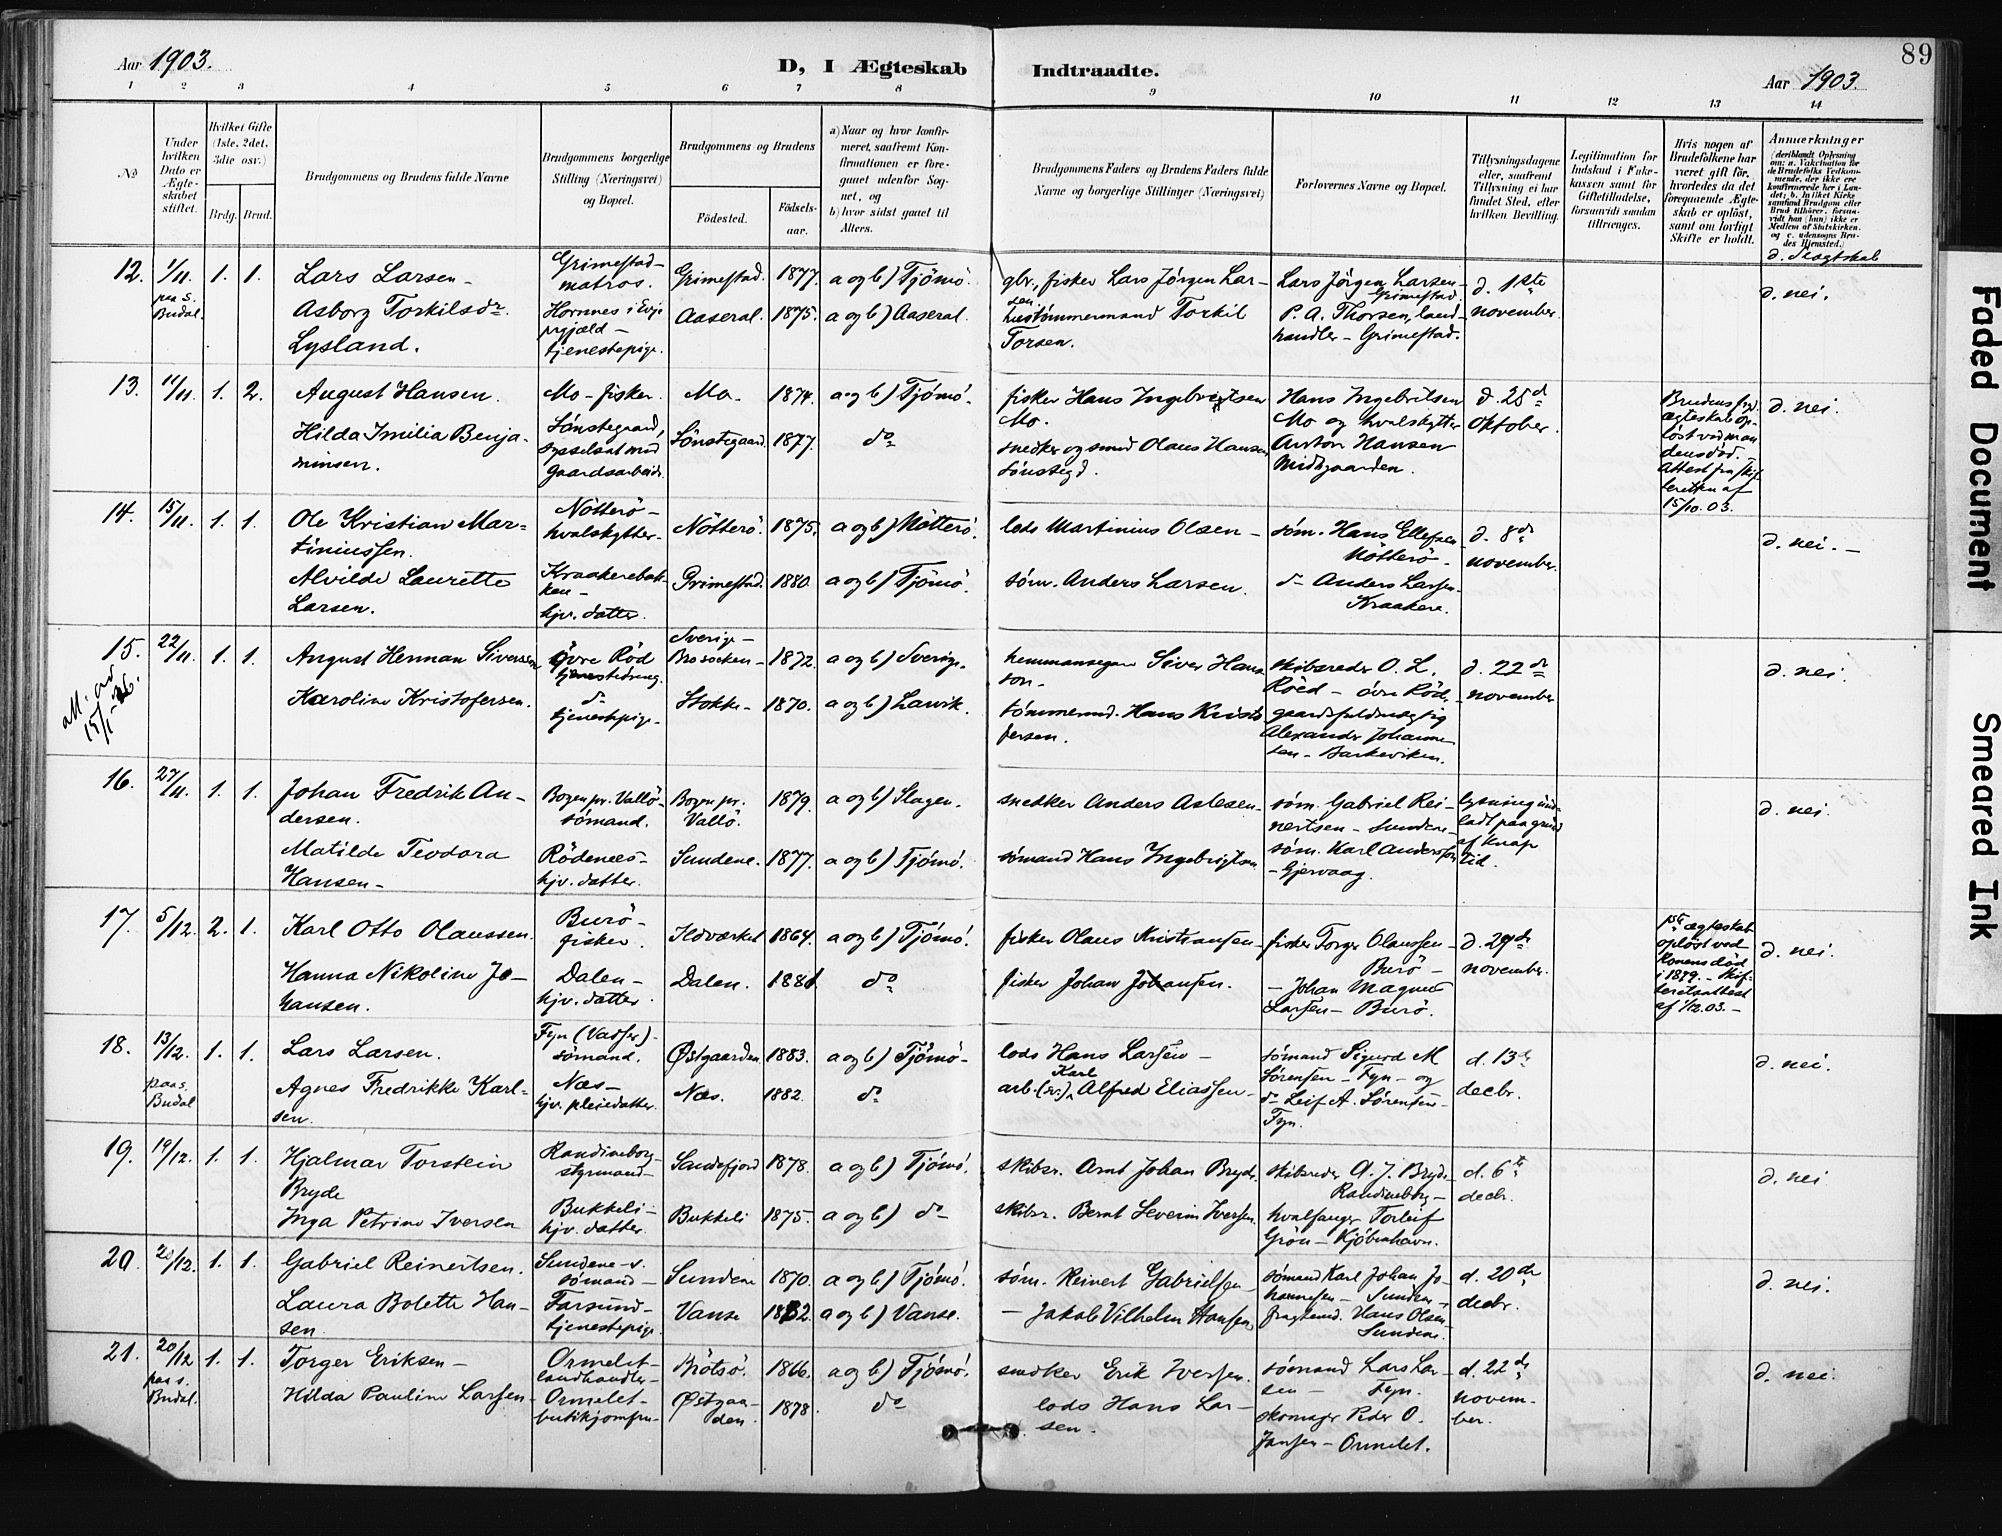 89
Aar 1903.
D, I Ægteskab Indtraadte.
Aar 1903.
1 2 3 4 5 6 7 8 9 10 11 12 13 14
No
Under hvilken Dato er Ægteskabet stiftet.
Hvilket Gifte (1ste, 2det, 3die osv.)
Brdg. Brud.
Brudgommens og Brudens fulde Navne
Brudgommens borgerlige Stilling (Næringsvei) og Bopæl.
Brudgommens og Brudens
Fødested.
Fødselsaar.
a) Naar og hvor konfirmeret, saafremt Konfirmationen er foregaaet udenfor Sognet, og
b) hvor sidst gaaet til Alters.
Brudgommens Faders og Brudens Faders fulde Navne og borgerlige Stillinger (Næringsvei)
Forlovernes Navne og Bopæl.
Tillysningsdagene eller, saafremt Tillysning ei har fundet Sted, efter hvilken Bevilling.
Legitimation for Indskud i Enkekassen samt for Giftetilladelse, forsaavidt saadan tiltrænges.
Hvis nogen af Brudefolkene har været gift før, hvorledes da det foregaaende Ægteskab er opløst, samt om lovligt Skifte er holdt.
Anmærkninger
d. Slægtskab
12. 1/11 1. 1. Lars Larsen - Grimestad - matros. Grimestad. 1877. a og b) Tjömö. gbr., fisker Lars Jørgen Larsen Lars Jörgen Larsen - Grimestad. d. 1ste november. d. nei.
paa s. Budal
Asborg Torkilsdr. Lysland. Hornnes i Evje prgjæld - tjenestepige. Aaseral. 1875. a og b) Aaseral. Torkil Torsen. P. A. Thorsen, landhandler - Grimestad.
13. 11/11 1. 2. August Hansen. Mo - fisker. Mo - 1874. a og b) Tjömö. fisker Hans Ingebrigtsen Mo. Hans Ingebretsen Mo og hvalskytter Anton Hansen Midtgaarden. d. 25de Oktober. d. nei.
Hilda Emilia Benjaminsen. Sönstegaard, sysselsat med gaardsarbeide. Sönstegaard. 1877. do snedker og smed Olaus Hansen Sönstegd.
15/10.03.
14. 15/11 1. 1. Ole Kristian Martiniussen. Nötterö - hvalskytter - Nötterö. 1875. a og b) Nötterö. lods Martinius Olsen - söm. Hans Ellefsen Nötterö - d. 8de november. d. nei. -
Alvilde Laurette Larsen. Kraakerebakken - hjv. datter. Grimestad. 1880. a og b) Tjömö. söm. Anders Larsen. do Anders Larsen - Kraakere.
15. 22/11 1. 1. August Herman Siversen övre Röd tjenestedreng. Sverige - Brosocken - 1872. a og b) Sverige. hemmansegare Siver Hansson - skibsreder O. L. Röed - övre Röd. d. 22de november d. nei.
15/1-26.
Karoline Kristofersen. do tjenestepige. Stokke - 1870. a og b) Larvik. tömmermd. Hans Kristofersen. gaardsfuldmægtig Alexander Johannesen - Barkeviken.
16. 27/11 1. 1. Johan Fredrik Andersen. Bogen pr. Vallö - sömand. Bogen pr. Vallö. 1879. a og b) Slagen. snedker Anders Aslesen - söm. Gabriel Reinertsen - Sundene - lysning undladt paa grund af knap tid. d. nei.
Matilde Teodora Hansen - Rödenees - hjv. datter. Sundene. 1877. a og b) Tjömö. sömand Hans Ingebrigtsen söm. Karl Andersen - Gjervaag.
17. 5/12. 2. 1. Karl Otto Olaussen. Burö - fisker. Ildværket 1864. a og b) Tjömö. fisker Olaus Kristiansen - fisker Torger Olaussen - Burö - d. 29de november. d. nei.
Hanna Nikoline Johansen. Dalen - hjv. datter. Dalen. 1881 do fisker Johan Johansen. - Johan Magnus Larsen - Burö.
ægteskab opløst ved konens død i 1879. - Skifteretsattest af 1/12.03. -
18. 13/12. 1. 1. Lars Larsen. Fyn (Vasser) - sömand. Østgaarden 1883. a og b) Tjömö - lods Hans Larsen - sömand Sigurd M Sörensen - Fyn - og d. 13de decbr. d. nei.
paa s. Budal
Agnes Fredrikke Karlsen. Næs - hjv. pleiedatter. Næs. 1882. do arb. Karl Alfred Eliassen - do Leif A. Sörensen - Fyn.
19. 19/12. 1. 1. Hjalmar Torstein Bryde Randineborg - styrmand - Sandefjord 1878. a og b) Tjömö. skibsr. Arnt Johan Bryde. skibsreder A. J. Bryde - Randineborg - d. 6te decbr. d. nei
Inga Petrine Iversen Bukkeli - hjv. datter. Bukkeli 1875. a og b) do skibsr. Bernt Severin Iversen. hvalfanger Torleif Grön - Kjöbenhavn.
20. 20/12. 1. 1. Gabriel Reinertsen. Sundene - sömand - Sundene 1870. a og b) Tjömö. söm. Reinert Gabrielsen - sömand Karl Johan Johannesen - Sundene - d. 20de decbr. d. nei.
Laura Bolette Hansen. Farsund - tjenestepige. Vanse a og b) Vanse. - Jakob Vilhelm Hansen Hans Olsen Sundene.
21. 20/12 1. 1. Torger Eriksen - Ormelet - landhandler - 1866. a og b) Tjömö. snedker Erik Iversen. sömand Lars Larsen - Fyn. d. 22de november. d. nei.
paa s. Budal.
Hilda Pauline Larsen - Ormelet - butikjomfru - Østgaarden. 1878. do lods Hans Larsen. skomager Peder O. Jansen - Ormelet.
Faded Document
Smeared Ink